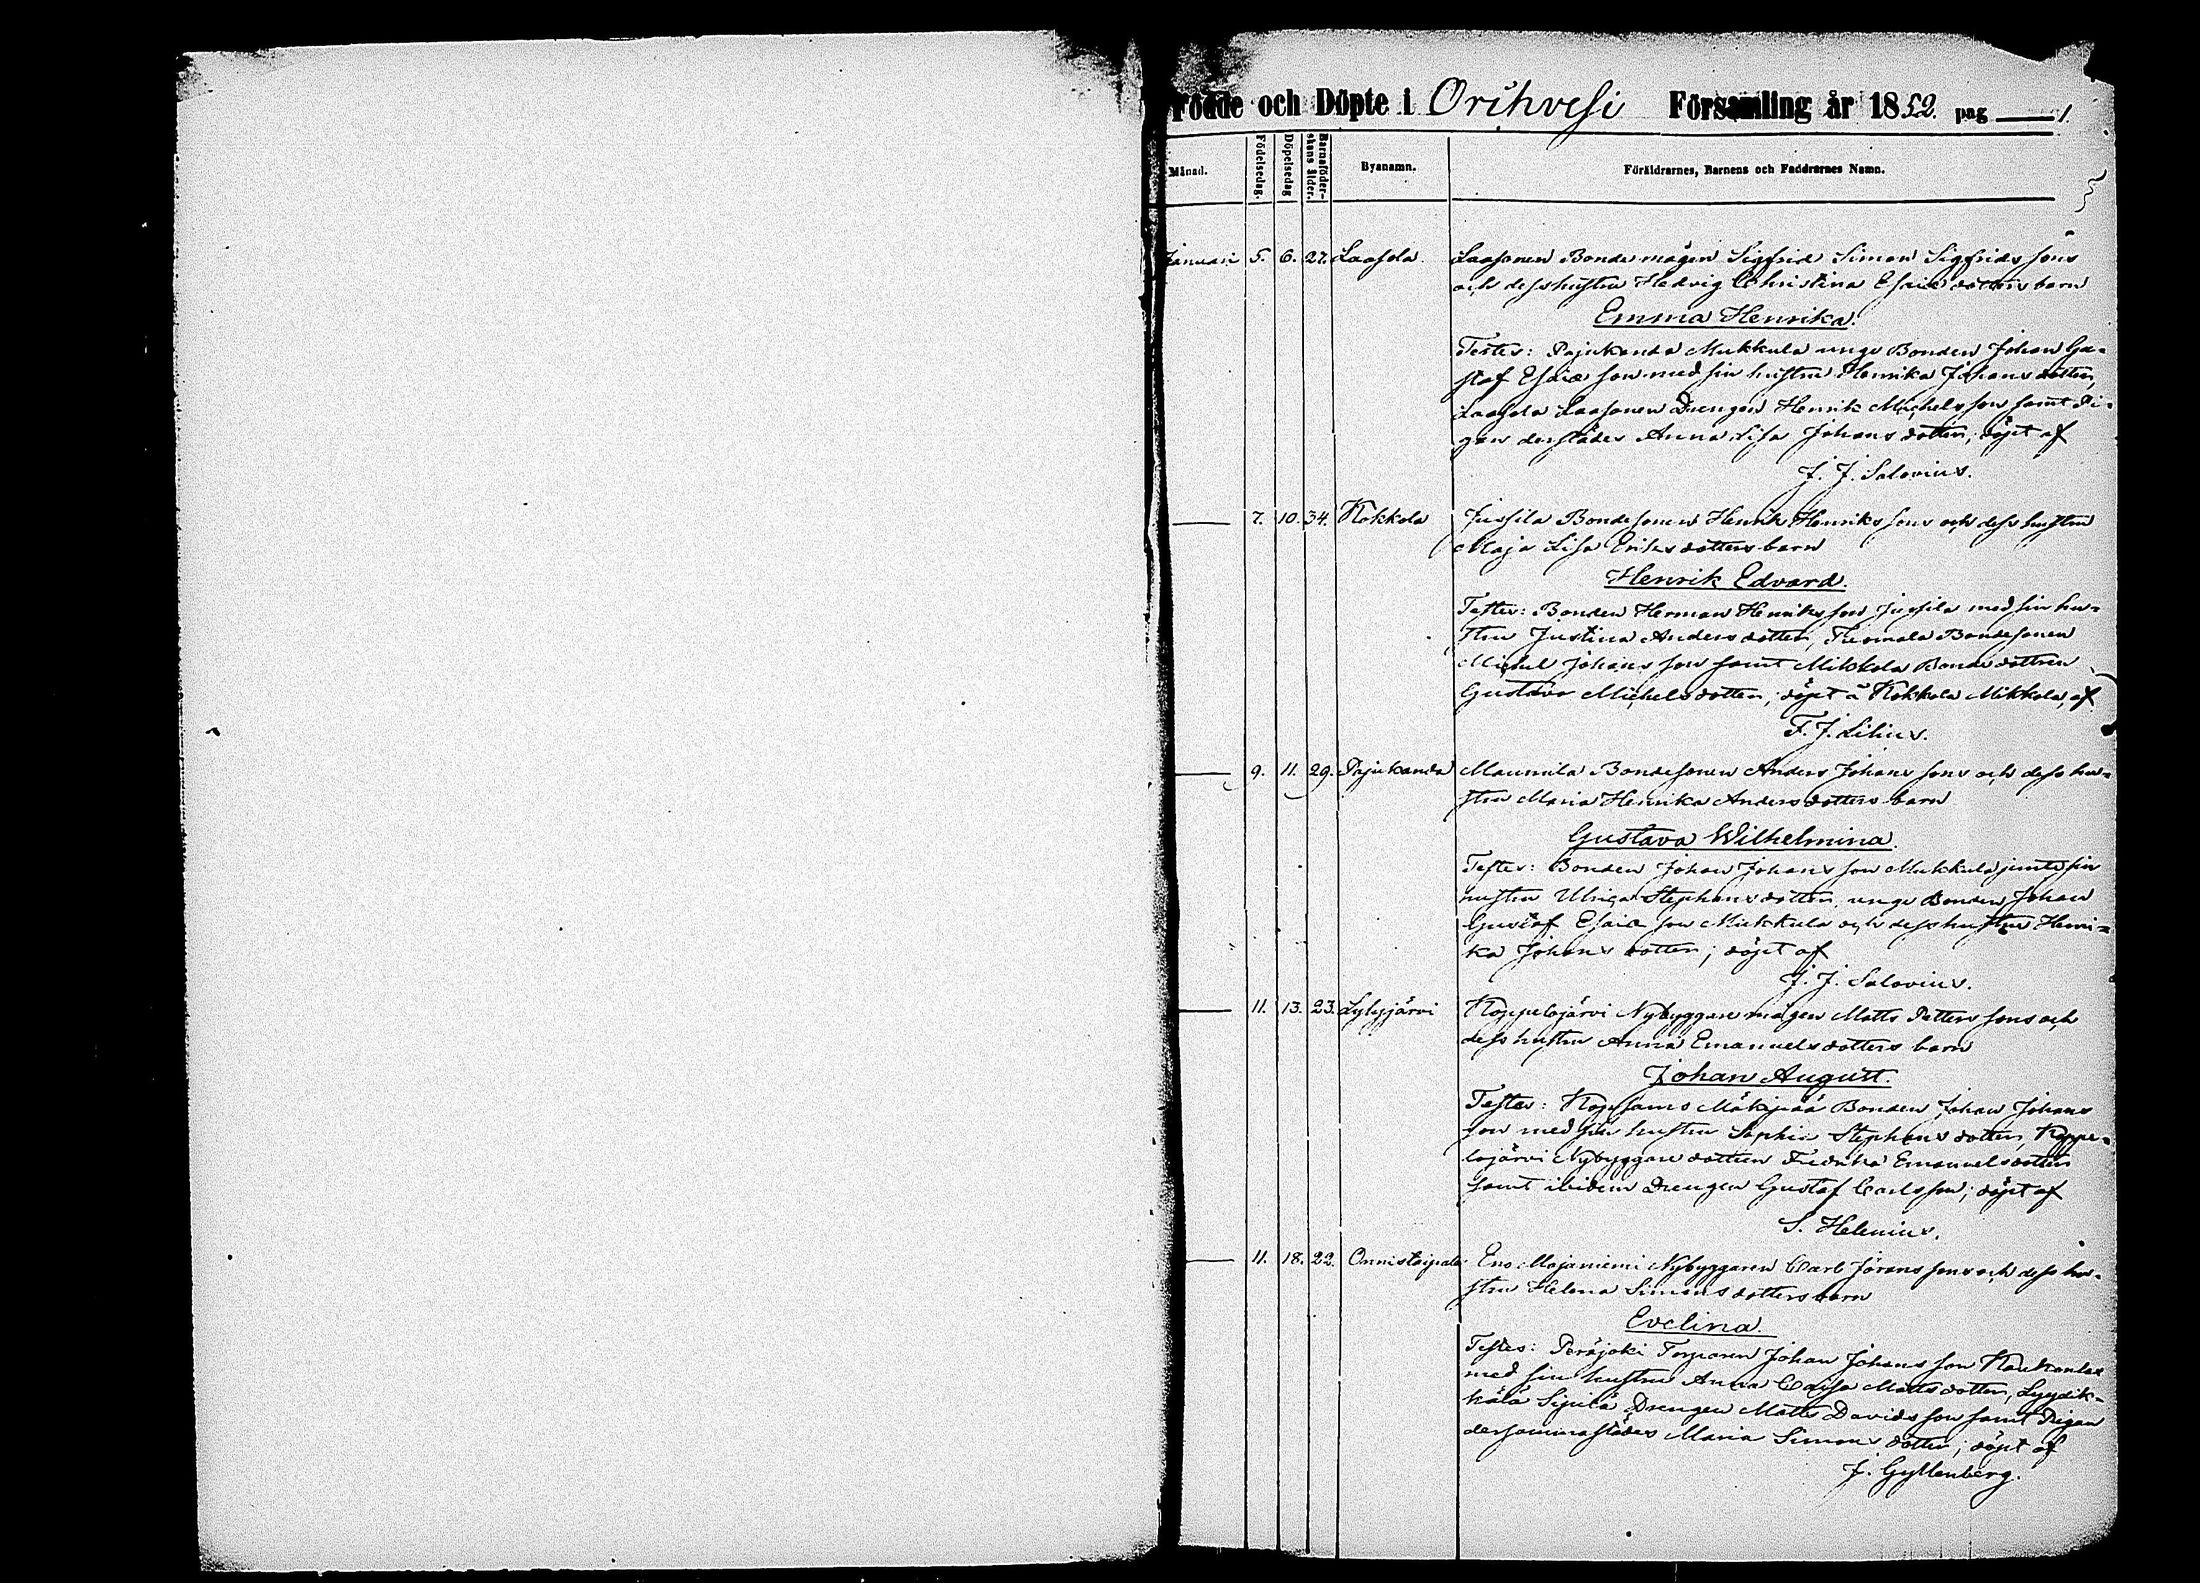 Födde och Döpte i Orihvesi Församling år 1852. pag 1.
Månad. Födelsedag. Döpelsedag Barnaföderskans ålder. Byanamn. Föräldrarnes, Barnens och Faddrarnes Namn.
Januari 5. 6. 27. Laasola. Laasonen Bonde mågen Sigfrid Simon Sigfrids sons
och dess hustru Hedvig Christina Esaiæ dotters barn
Emma Henrika.
Testes: Pajukanda Mukkula unge Bonden Johan Gu=
staf Esaiæ son med sin hustru Henrika Johans dotter,
Laasola Laasonen Drengen Henrik Michels son samt Pi=
gan derstädes Anna Lisa Johans dotter; döpt af
J. J. Salovius.
— 7. 10. 34. Kokkola Jussila Bondesonen Henrik Henriks sons och dess hustru
Maja Lisa Eriks dotters barn
Henrik Edvard.
Testes: Bonden Herman Henriks son Jussila med sin hu=
stru Justina Anders dotter, Bondesonen
Michel Johans son samt Mikkola Bonde dottren
Gustava Michels dotter; döpt å Kokkola Mikkola, af
F. J. Lilius.
— 9. 11. 29. Pajukanda Maunula Bondesonen Anders Johans sons och dess hu=
stru Maria Henrika Anders dotters barn
Gustava Wilhelmina.
Testes: Bonden Johan Johans son Mukkula jemte sin
hustru Ulrica Stephans dotter, unge Bonden Johan
Gustaf Esaiæ son Mukkula och dess hustru Henri=
ka Johans dotter; döpt af
J. J. Salovius.
— 11. 13. 23. Lylyjärvi Koppelojärvi Nybyggare mågen Matts Petters sons och
dess hustru Anna Emanuels dotters barn
Johan August.
Testes: Kopsamo Mäkipää Bonden Johan Johans
son med sin hustru Sophia Stephans dotter, Koppe=
lojärvi Nybyggare dottren Fredrika Emanuels dotter
samt ibidem Drengen Gustaf Carls son; döpt af
S. Helenius.
— 11. 18. 22. Onnistaipale Eno Majaniemi Nybyggaren Carl Jörans sons och dess hu=
stru Helena Simons dotters barn
Evelina.
Testes: Peräjoki Torparen Johan Johans son
med sin hustru Anna Caisa Matts dotter, Lyydik=
kälä Sipilä Drengen Matts Davids son samt Pigan
dersammastädes Maria Simons dotter; döpt af
J. Gyllenberg.